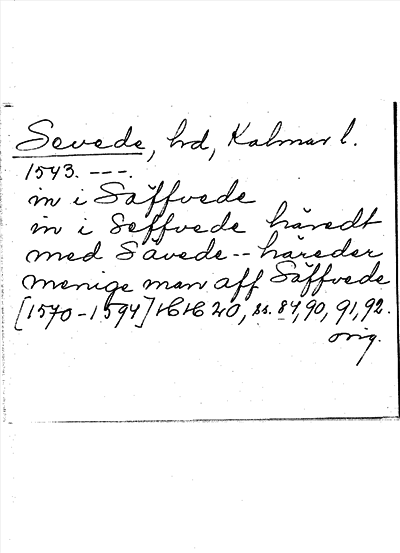 Sevede, hd, Kalmar l.
1543. ---.
in i Säffvede
in i Seffvede häredt
med Sävede -- häreder
menige man aff Säffvede
[1570-1594] HH 20, ss. 87, 90, 91, 92.
orig.